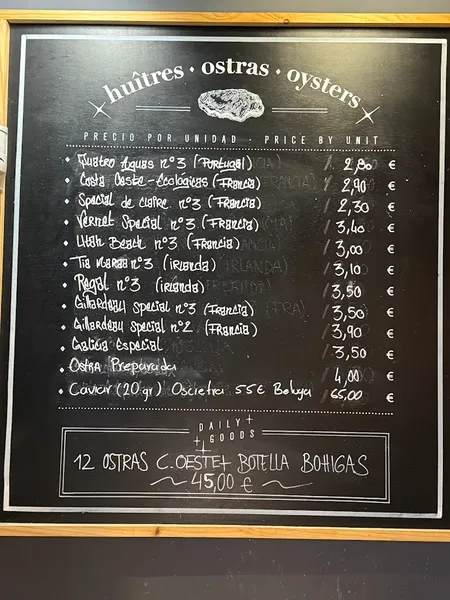 huîtres · ostras · oysters
PRECIO POR UNIDAD · PRICE BY UNIT
Cuatro Aguas nº3 (Portugal) 2,80 €
Costa Oeste-Ecológicas (Francia) 2,90 €
Special de claire nº3 (Francia) 2,30 €
Vernet Special nº3 (Francia) 3,40 €
Utah Beach nº3 (Francia) 3,00 €
Tia Maraa nº3 (irlanda) 3,10 €
Regal nº3 (irlanda) 3,50 €
Gillardeau special nº3 (Francia) 3,50 €
Gillardeau special nº2 (Francia) 3,90 €
Galicia Especial 3,50 €
Ostra Preparada 4,00 €
Caviar (20 gr) Oscietra 55€ Beluga 65,00 €
DAILY
GOODS
12 OSTRAS C.OESTE+ BOTELLA BOHIGAS
45,00 €